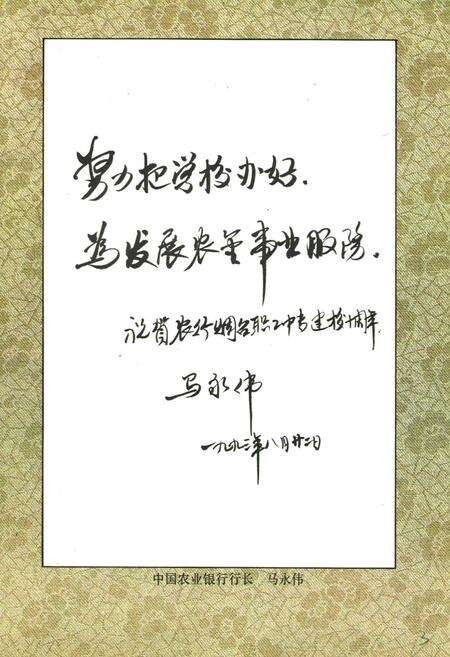 努力把学校办好.
为发展农金事业服务.
祝贺农行烟台职工中专建校十周年
马永伟
一九九三年八月廿二日
中国农业银行行长 马永伟
3